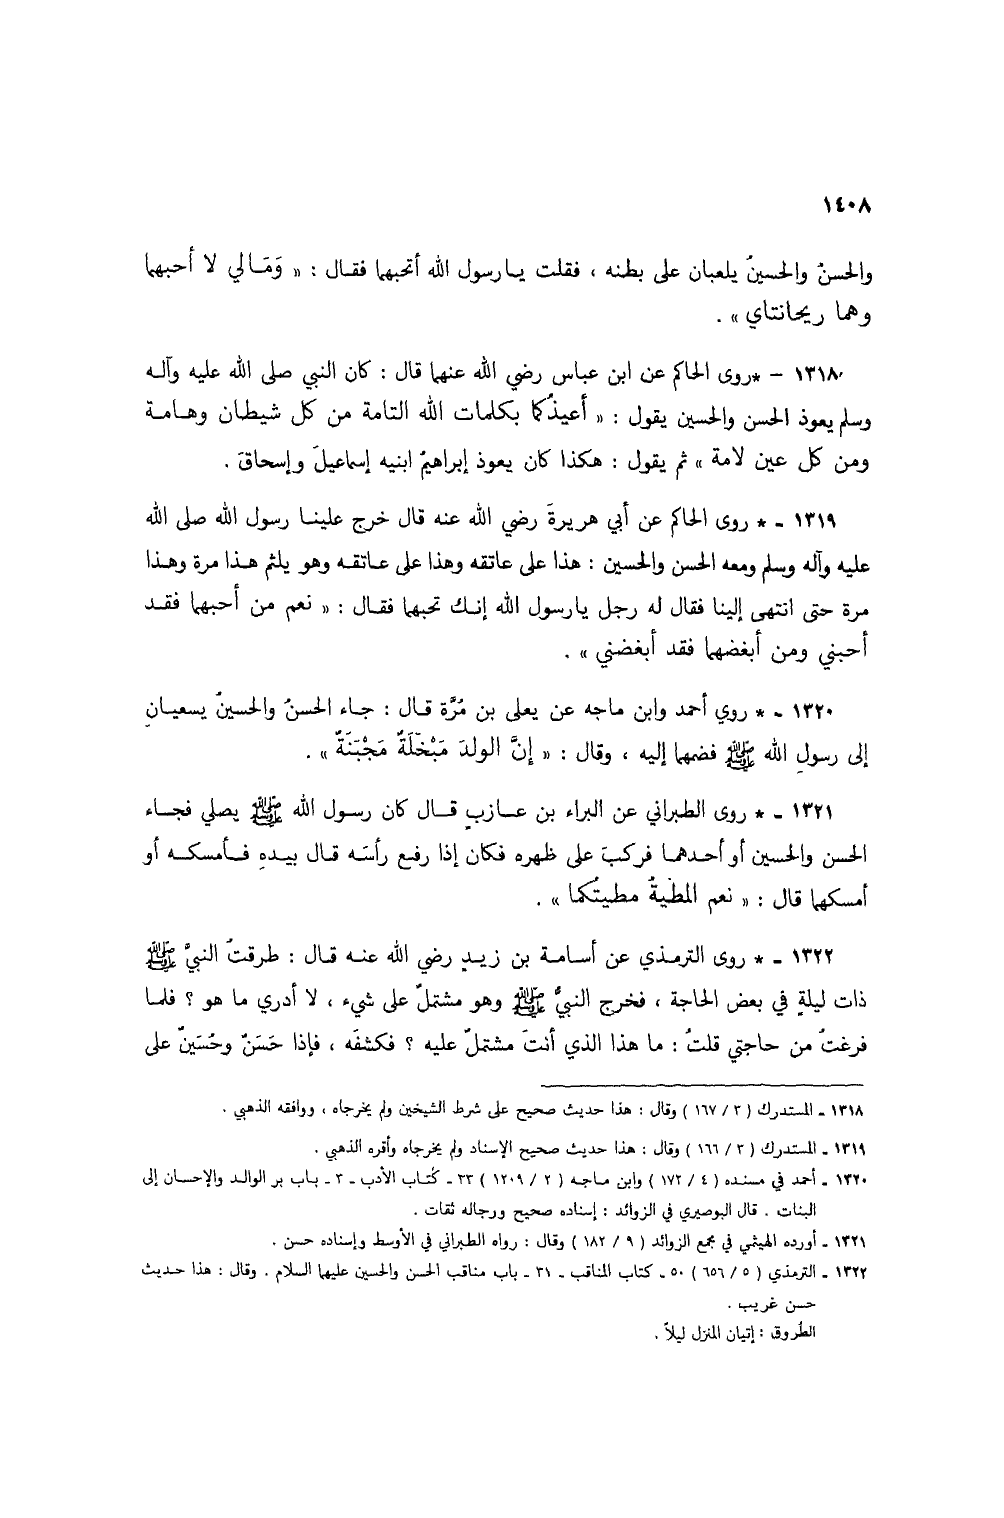 ١٤٠٨
والحسنُ والحسينُ يلعبان على بطنه ، فقلت يـارسول الله أتحبهما فقـال : « وَمَـالي لا أحبهما
وهما ريحانتاي » .
١٣١٨ - *روى الحاكم عن ابن عباس رضي الله عنهما قال : كان النبي صلى الله عليه وآلـه
وسلم يعوذ الحسن والحسين يقول : « أعيذُكما بكلمات الله التامة من كل شيطان وهـامـة
ومن كل عين لامة » ثم يقول : هكذا كان يعوذ إبراهيمُ ابنيه إسماعيلَ وإسحاقَ .
١٣١٩ - * روى الحاكم عن أبي هريرةَ رضي الله عنه قال خرج علينـا رسول الله صلى الله
عليه وآله وسلم ومعه الحسن والحسين : هذا على عاتقه وهذا على عـاتقـه وهو يلثم هـذا مرة وهـذا
مرة حتى انتهى إلينا فقال له رجل يارسول الله إنـك تحبهما فقـال : « نعم من أحبهما فقـد
أحبني ومن أبغضهما فقد أبغضني » .
١٣٢٠ - * روي أحمد وابن ماجه عن يعلى بن مُرَّة قـال : جـاء الحسنُ والحسينُ يسعيـانِ
إلى رسولِ الله ﷺ فضمهما إليه ، وقال : « إنَّ الولدَ مَبْخَلَةٌ مَجْبَنَةٌ » .
١٣٢١ - * روى الطبراني عن البراء بن عـازبٍ قـال كان رسـول الله ﷺ يصلي فجـاء
الحسن والحسين أو أحدهمـا فركبَ على ظهره فكان إذا رفع رأسَه قـال بيـدهِ فـأمسكـه أو
أمسكهما قال : « نعم المطيةُ مطيتُكما » .
١٣٢٢ - * روى الترمـذي عن أسـامـة بن زيـدٍ رضي الله عنـه قـال : طرقتُ النبيَّ ﷺ
ذات ليلةٍ في بعض الحاجة ، فخرج النبيُّ ﷺ وهو مشتملٌ على شيء ، لا أدري ما هو ؟ فلمـا
فرغتُ من حاجتي قلتُ : ما هذا الذي أنتَ مشتملٌ عليه ؟ فكشفَه ، فإذا حَسَنٌ وحُسَينٌ على
١٣١٨ - المستدرك ( ٣ / ١٦٧ ) وقال : هذا حديث صحيح على شرط الشيخين ولم يخرجاه ، ووافقه الذهبي .
١٣١٩ - المستدرك ( ٣ / ١٦٦ ) وقال : هذا حديث صحيح الإسناد ولم يخرجاه وأقره الذهبي .
١٣٢٠ - أحمد في مسنده ( ٤ / ١٧٢ ) وابن ماجـه ( ٢ / ١٢٠٩ ) ٣٣ - كتـاب الأدب - ٣ - بـاب بر الوالـد والإحسـان إلى
البنات . قال البوصيري في الزوائد : إسناده صحيح ورجاله ثقات .
١٣٢١ - أورده الهيثمي في مجمع الزوائد ( ٩ / ١٨٢ ) وقال : رواه الطبراني في الأوسط وإسناده حسن .
١٣٢٢ - الترمذي ( ٥ / ٦٥٦ ) ٥٠ - كتاب المناقب - ٣١ - باب مناقب الحسن والحسين عليهما السلام . وقال : هذا حـديث
حسن غريب .
الطُروق : إتيان المنزل ليلاً .